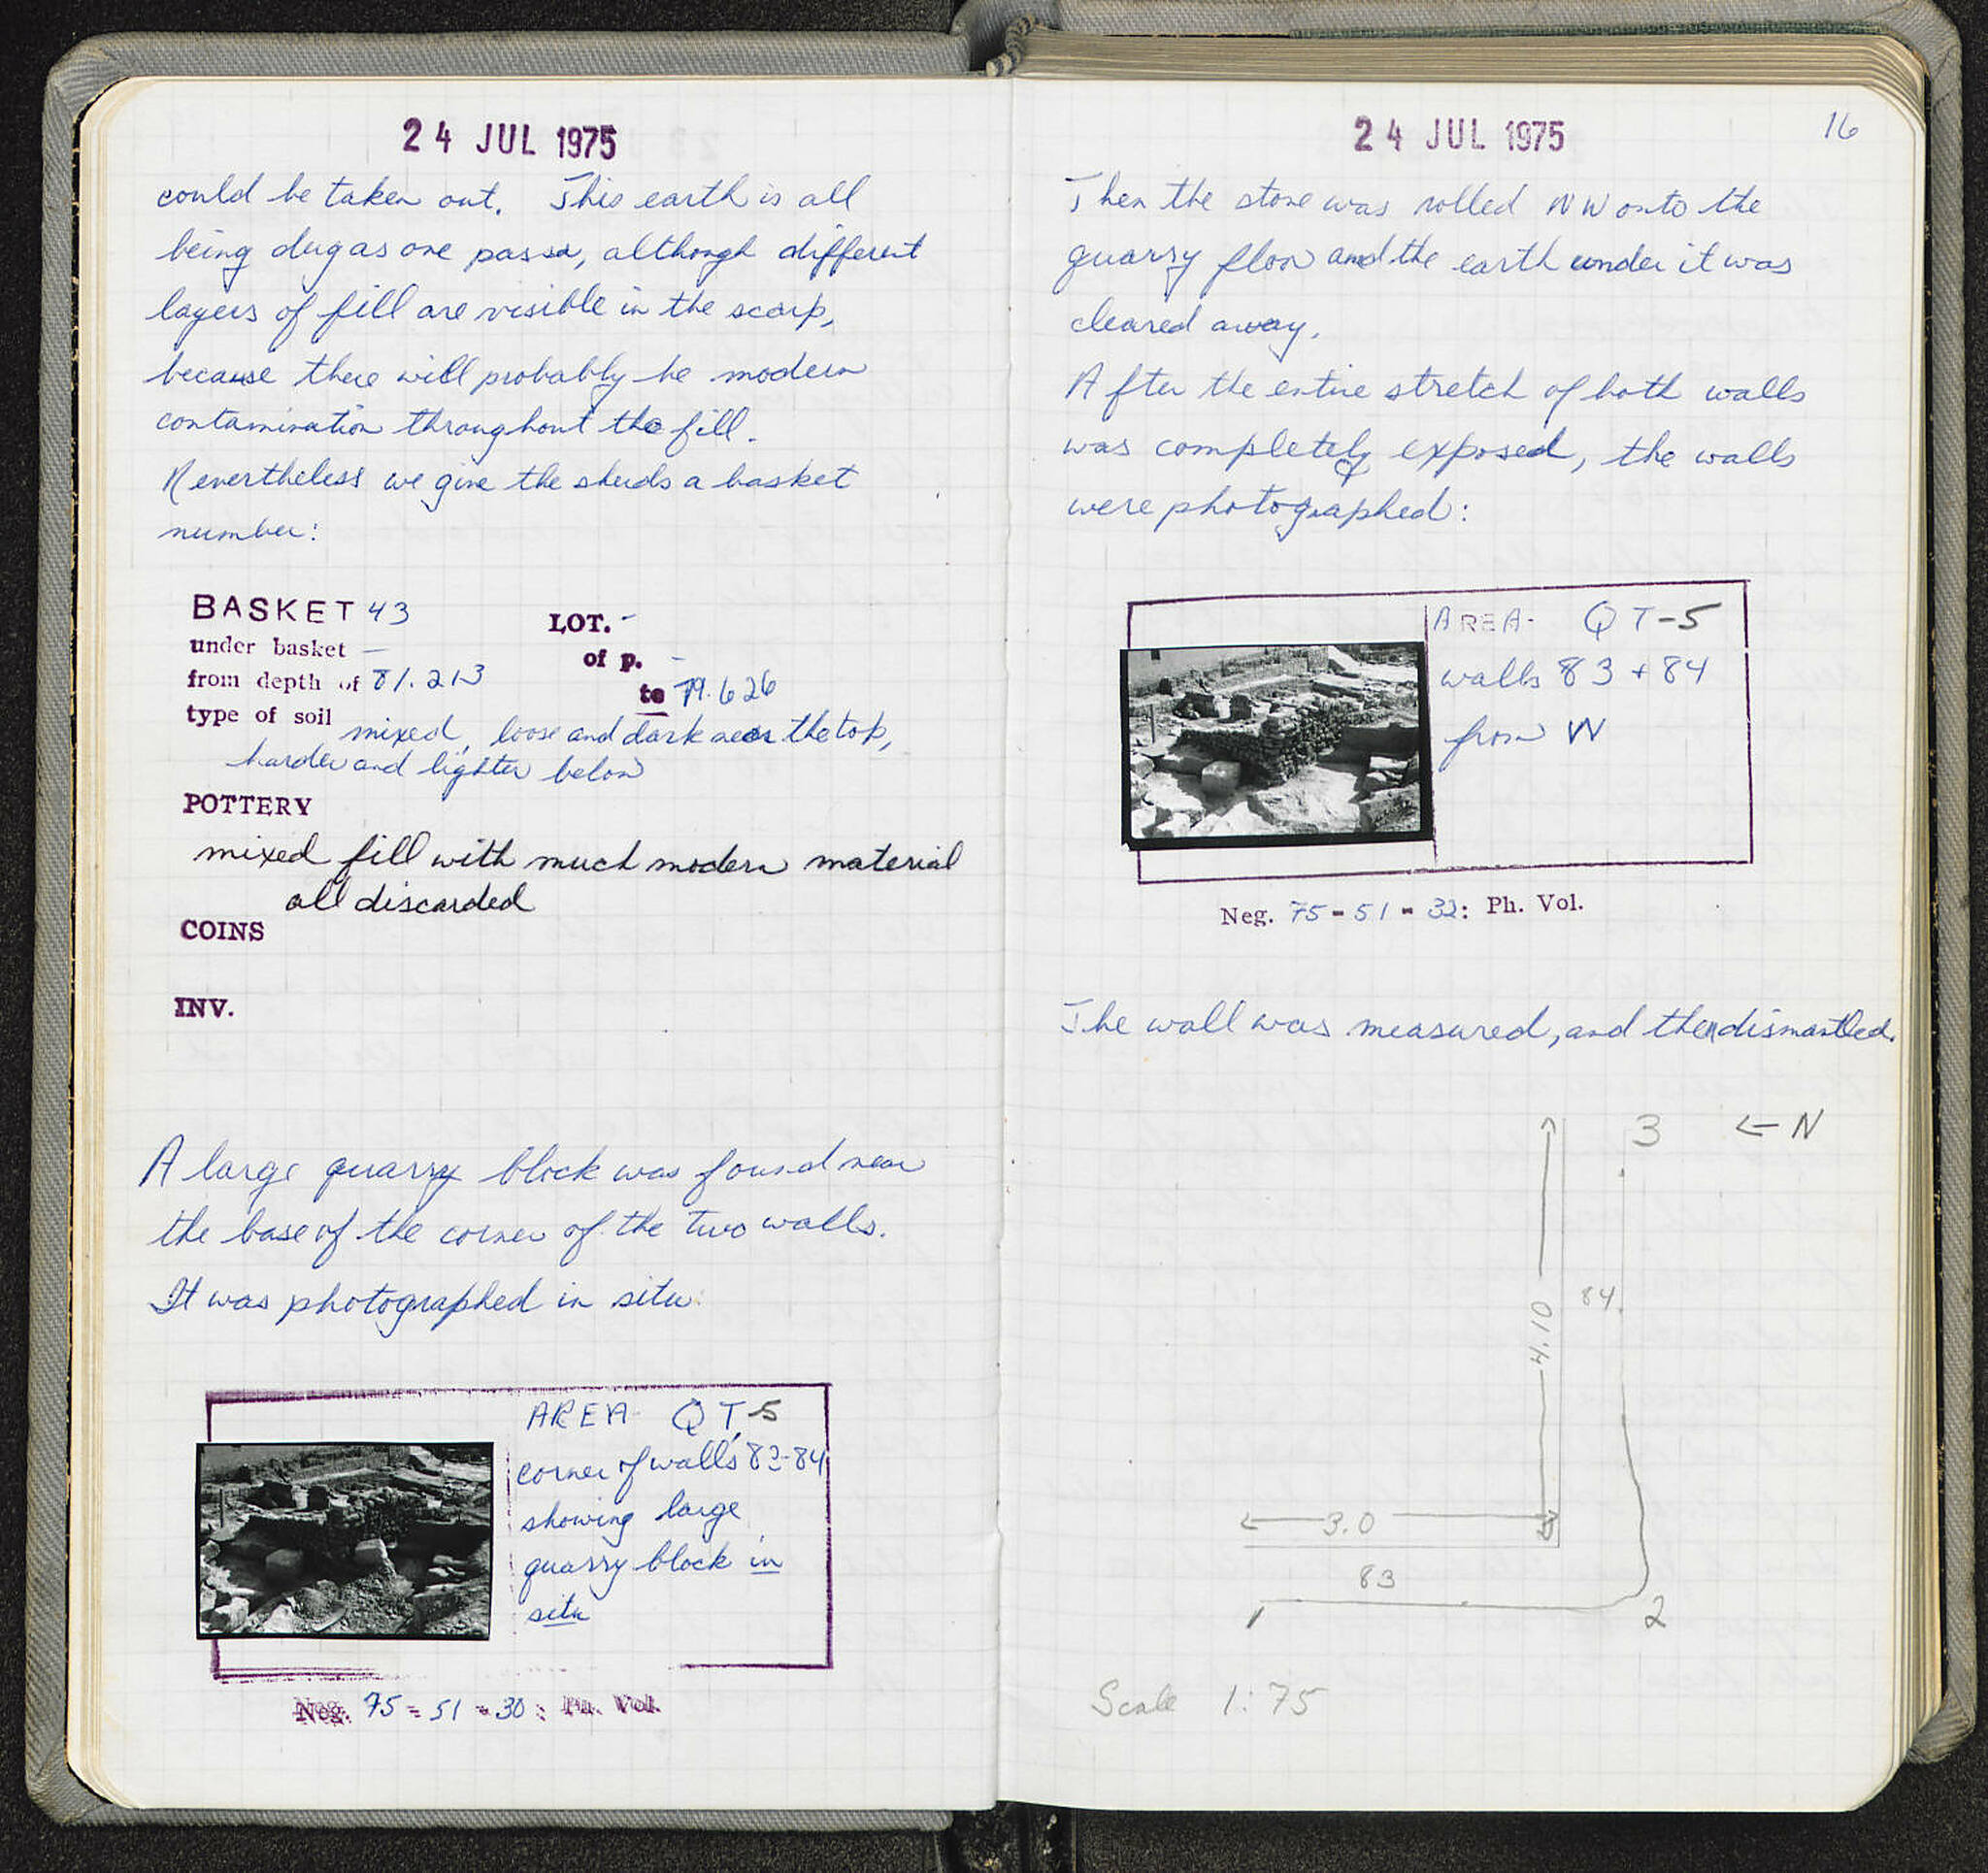 24 JUL 1975
could be taken out. This earth is all
being dug as one pass, although different
layers of fill are visible in the scarp,
because there will probably be modern
contamination throughout the fill.
Nevertheless we give the sherds a basket
number:
BASKET 43 LOT. -
under basket — of p. -
from depth of 81.213 to 79.626
type of soil mixed, loose and dark near the top,
harder and lighter below
POTTERY
mixed fill with much modern material
all discarded
COINS
INV.
A large quarry block was found near
the base of the corner of the two walls.
It was photographed in situ:
AREA- QT-5
corner of walls 83-84
showing large
quarry block in
situ
Neg. 75-51-30: Ph. Vol.
24 JUL 1975
16
Then the stone was rolled NW onto the
quarry floor and the earth under it was
cleared away.
After the entire stretch of both walls
was completely exposed, the walls
were photographed:
AREA- QT-5
walls 83 + 84
from W
Neg. 75-51-32: Ph. Vol.
The wall was measured, and then dismantled.
3 ← N
84
4.10
3.0
83
1 2
Scale 1:75